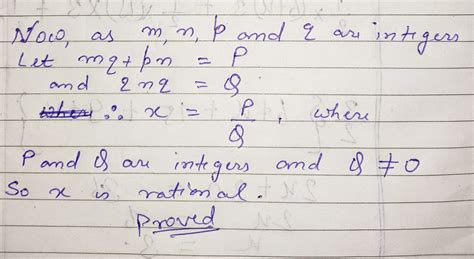 Now, as m, n, p and q are integers
Let mq + pn = P
and 2nq = Q
∴ x = P/Q, where
P and Q are integers and Q ≠ 0
So x is rational.
Proved